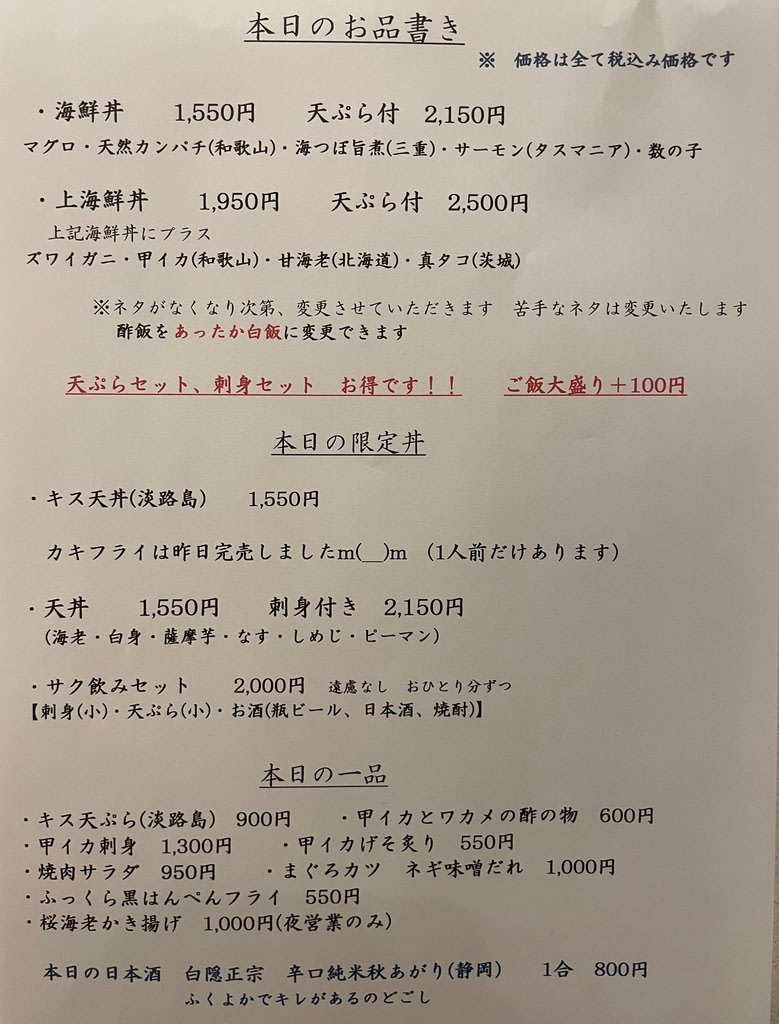 本日のお品書き
※　価格は全て税込み価格です
・海鮮丼　　1,550円　　天ぷら付　2,150円
マグロ・天然カンパチ(和歌山)・海つぼ旨煮(三重)・サーモン(タスマニア)・数の子
・上海鮮丼　　1,950円　　天ぷら付　2,500円
上記海鮮丼にプラス
ズワイガニ・甲イカ(和歌山)・甘海老(北海道)・真タコ(茨城)
※ネタがなくなり次第、変更させていただきます　苦手なネタは変更いたします
酢飯をあったか白飯に変更できます
天ぷらセット、刺身セット　お得です！！　　ご飯大盛り＋100円
本日の限定丼
・キス天丼(淡路島)　　1,550円
カキフライは昨日完売しましたm(__)m　(1人前だけあります)
・天丼　　1,550円　　刺身付き　2,150円
(海老・白身・薩摩芋・なす・しめじ・ピーマン)
・サク飲みセット　　2,000円　遠慮なし　おひとり分ずつ
【刺身(小)・天ぷら(小)・お酒(瓶ビール、日本酒、焼酎)】
本日の一品
・キス天ぷら(淡路島)　900円　　・甲イカとワカメの酢の物　600円
・甲イカ刺身　1,300円　　・甲イカげそ炙り　550円
・焼肉サラダ　950円　　・まぐろカツ　ネギ味噌だれ　1,000円
・ふっくら黒はんぺんフライ　550円
・桜海老かき揚げ　1,000円(夜営業のみ)
本日の日本酒　白隠正宗　辛口純米秋あがり(静岡)　　1合　800円
ふくよかでキレがあるのどごし